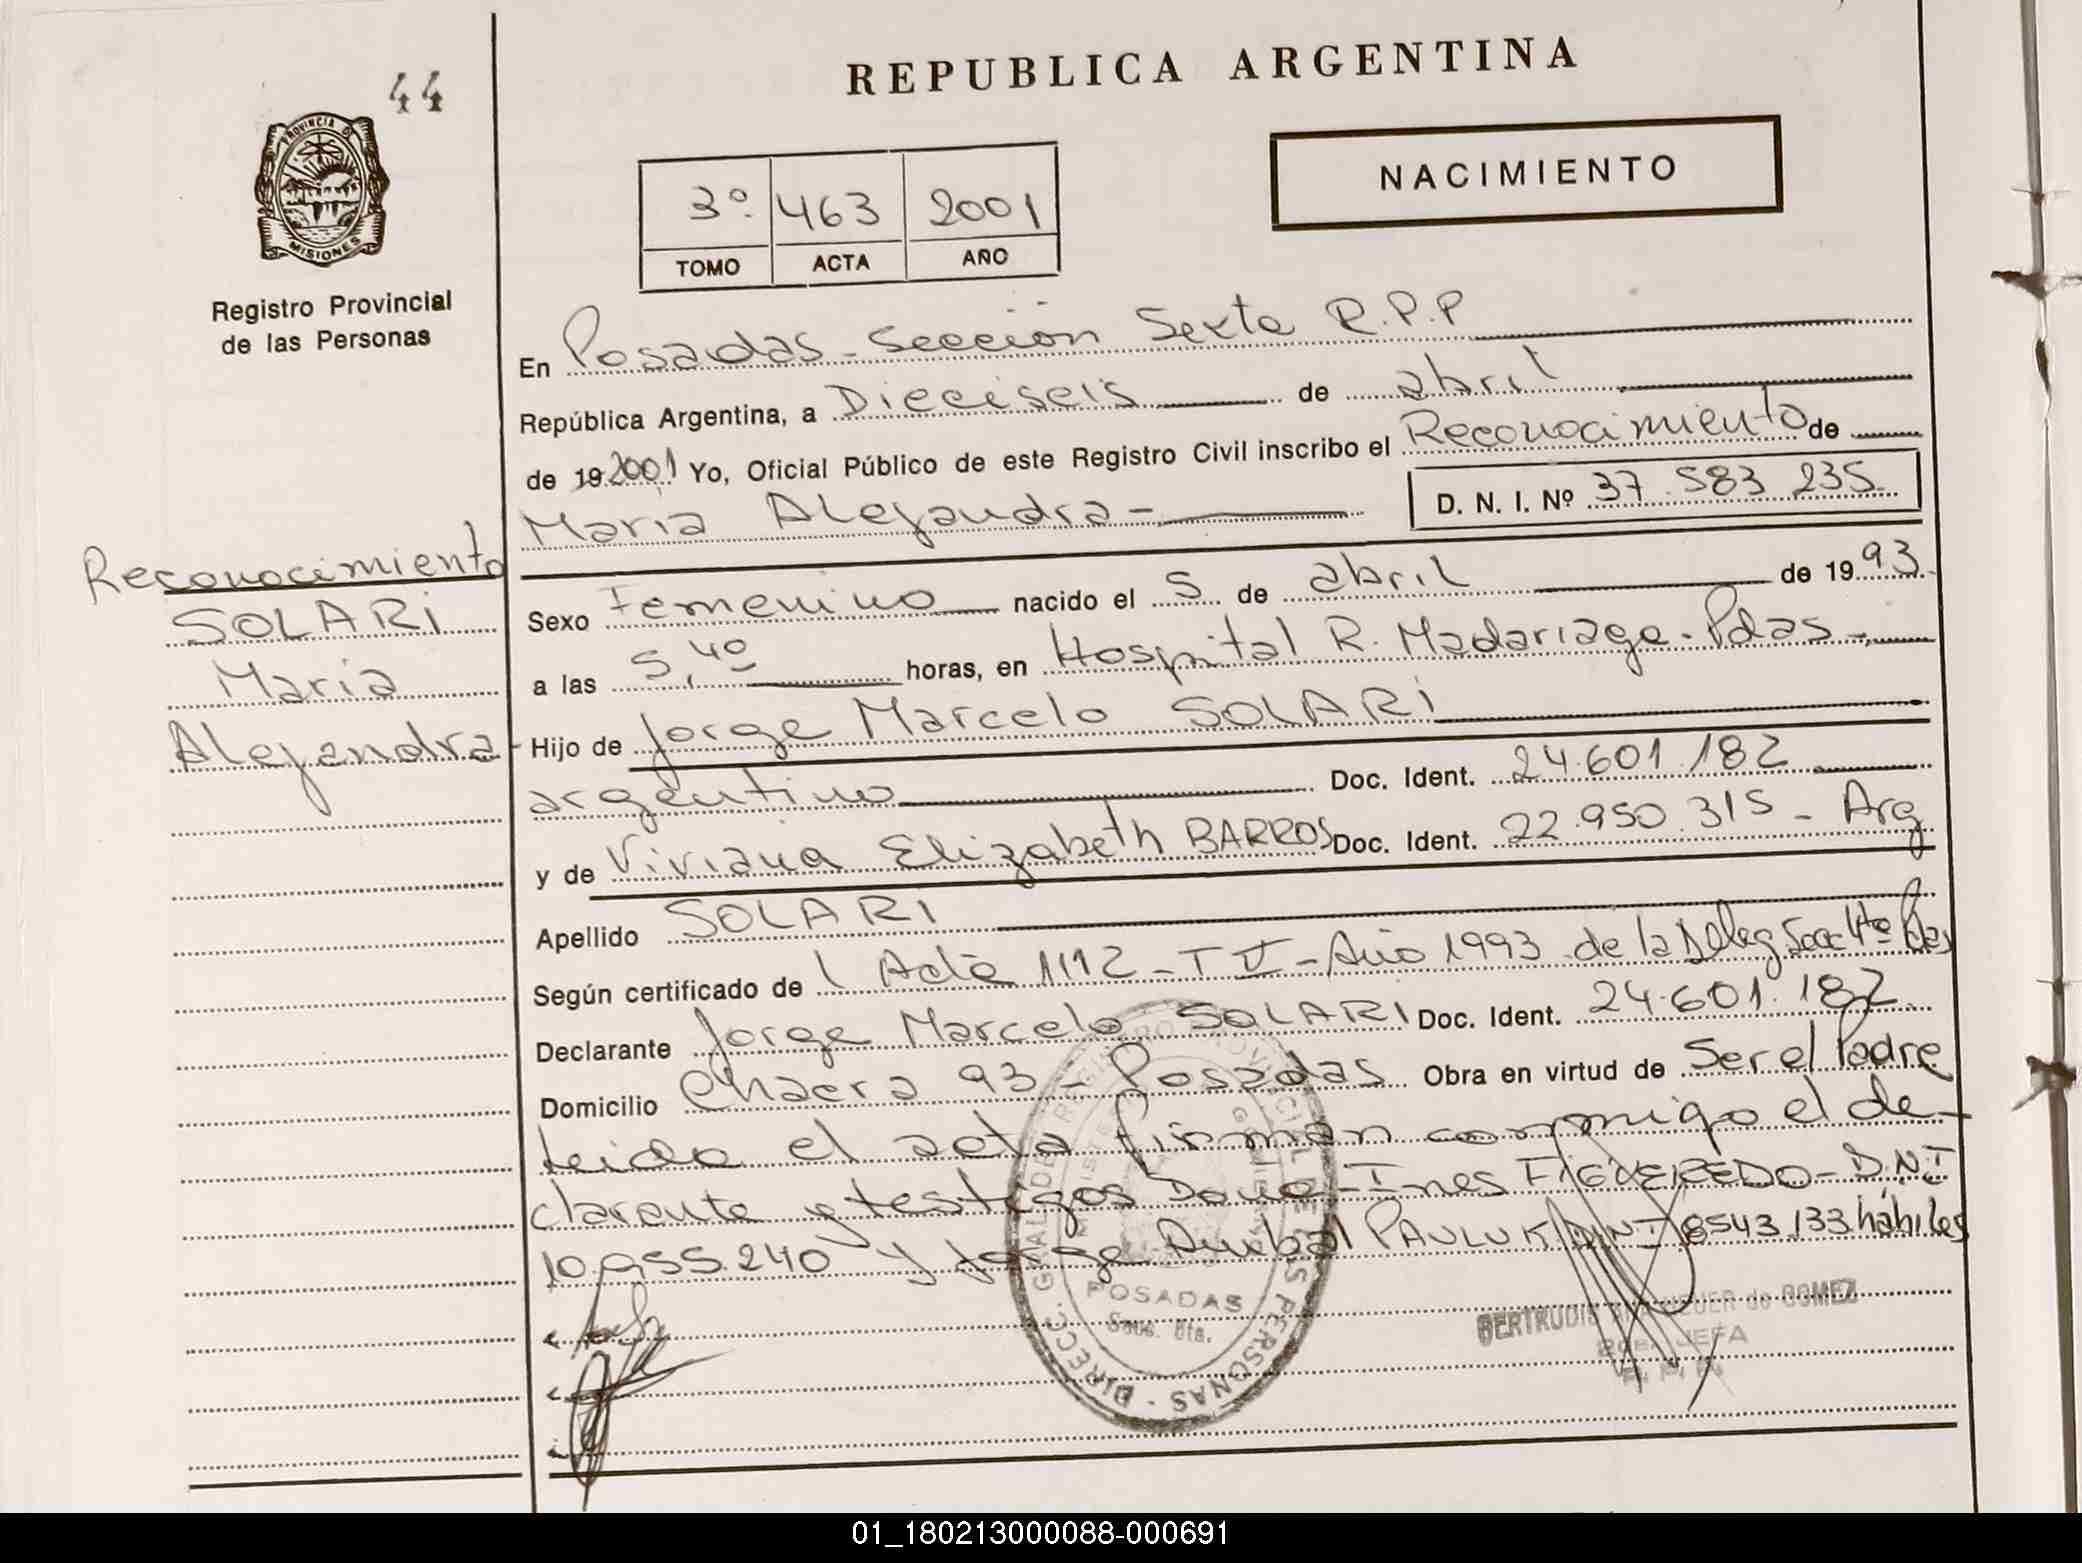 44
REPUBLICA ARGENTINA
PROVINCIA DE
MISIONES
Registro Provincial
de las Personas
NACIMIENTO
3º 463 2001
TOMO ACTA AÑO
En Posadas - Sección Sexta R.P.P
República Argentina, a Dieciseis de abril
de 19 2001 Yo, Oficial Público de este Registro Civil inscribo el Reconocimiento de
Maria Alejandra - D. N. I. Nº 37.583.235
Reconocimiento
SOLARI
Maria
Alejandra
Sexo Femenino nacido el 5 de abril de 1993
a las 5,40 horas, en Hospital R. Madariaga - Pdas -
Hijo de Jorge Marcelo SOLARI
argentino Doc. Ident. 24.601.182
y de Viviana Elizabeth BARROS Doc. Ident. 22.950.315 - Arg
Apellido SOLARI
Según certificado de Acta 1112 - T V - Año 1993 de la Deleg Secc 4ta Pdas
Declarante Jorge Marcelo SOLARI Doc. Ident. 24.601.182
Domicilio Chacra 93 - Posadas Obra en virtud de Ser el Padre
leida el acta firman conmigo el de-
clarante y testigos Doña - Ines FIGUEREDO - D.N.I
10.955.240 y Jorge Anibal PAULUK D.N.I 8543.133 hábiles
DIRECC. GRAL. DEL REGISTRO PROVINCIAL DE LAS PERSONAS
POSADAS
Secc. 6ta.
GERTRUDIS de GOMEZ
JEFA
01_180213000088-000691